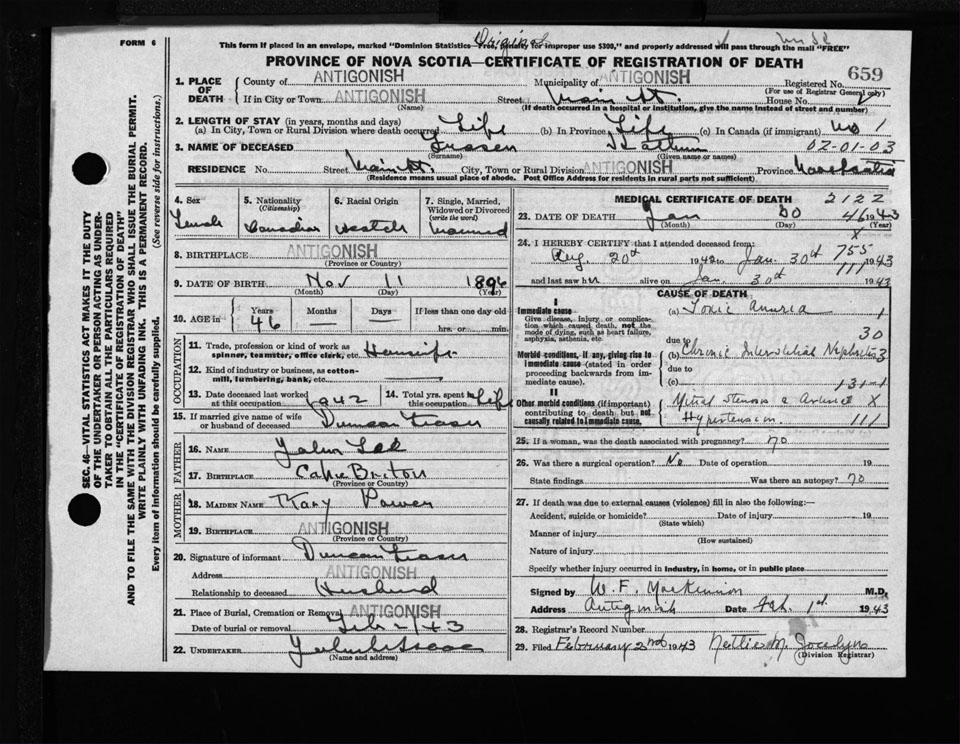 FORM 6
Original
This form if placed in an envelope, marked "Dominion Statistics—Free, penalty for improper use $300," and properly addressed will pass through the mail "FREE"
PROVINCE OF NOVA SCOTIA—CERTIFICATE OF REGISTRATION OF DEATH
SEC. 46—VITAL STATISTICS ACT MAKES IT THE DUTY
OF THE UNDERTAKER OR PERSON ACTING AS UNDERTAKER
TAKER TO OBTAIN ALL THE PARTICULARS REQUIRED
IN THE "CERTIFICATE OF REGISTRATION OF DEATH"
AND TO FILE THE SAME WITH THE DIVISION REGISTRAR WHO SHALL ISSUE THE BURIAL PERMIT.
WRITE PLAINLY WITH UNFADING INK. THIS IS A PERMANENT RECORD.
Every item of information should be carefully supplied. (See reverse side for instructions.)
1. PLACE OF DEATH County of ANTIGONISH Municipality of ANTIGONISH Registered No. 659
(For use of Registrar General only)
If in City or Town ANTIGONISH Street Main St. House No.
(Name) (If death occurred in a hospital or institution, give the name instead of street and number)
2. LENGTH OF STAY (in years, months and days)
(a) In City, Town or Rural Division where death occurred Life (b) In Province Life (c) In Canada (if immigrant) no 1
3. NAME OF DECEASED Fraser 02-01-03
(Surname) (Given name or names)
RESIDENCE No. Street Main St. City, Town or Rural Division ANTIGONISH Province Nova Scotia
(Residence means usual place of abode. Post Office Address for residents in rural parts not sufficient)
4. Sex Female
5. Nationality (Citizenship) Canadian
6. Racial Origin Scotch
7. Single, Married, Widowed or Divorced (write the word) Married
8. BIRTHPLACE ANTIGONISH
(Province or County)
9. DATE OF BIRTH Nov 11 1896
(Month) (Day) (Year)
10. AGE in Years 46 Months — Days — If less than one day old
hrs. or min.
OCCUPATION
11. Trade, profession or kind of work as
spinner, teamster, office clerk, etc. Housewife
12. Kind of industry or business, as cotton-
mill, lumbering, bank, etc. —
13. Date deceased last worked at this occupation 1942 14. Total yrs. spent in this occupation Life
15. If married give name of wife
or husband of deceased Duncan Fraser
FATHER
16. NAME John
17. BIRTHPLACE Cape Breton
(Province or County)
MOTHER
18. MAIDEN NAME Mary Power
19. BIRTHPLACE ANTIGONISH
(Province or County)
20. Signature of informant Duncan Fraser
Address ANTIGONISH
Relationship to deceased Husband
21. Place of Burial, Cremation or Removal ANTIGONISH
Date of burial or removal Feb - 1 43
22. UNDERTAKER
(Name and address)
MEDICAL CERTIFICATE OF DEATH 2122
23. DATE OF DEATH Jan 30 1943
46
(Month) (Day) (Year)
X
24. I HEREBY CERTIFY that I attended deceased from: 755
Aug. 20th 1942 to Jan. 30th 1943
111
and last saw her alive on Jan. 30th 1943
CAUSE OF DEATH
I
Immediate cause
Give disease, injury or complication which caused death, not the mode of dying, such as heart failure, asphyxia, asthenia, etc.
(a) Toxic Anuria 1
due to 30
Morbid conditions, if any, giving rise to immediate cause (stated in order proceeding backwards from immediate cause).
(b) Chronic Interstitial Nephritis 3
due to
(c) 131
II
Other morbid conditions (if important) contributing to death but not causally related to immediate cause.
Mitral stenosis X
Hypertension. 111
25. If a woman, was the death associated with pregnancy? no
26. Was there a surgical operation? No Date of operation 19
State findings Was there an autopsy? no
27. If death was due to external causes (violence) fill in also the following:—
Accident, suicide or homicide? Date of injury 19
(State which)
Manner of injury
(How sustained)
Nature of injury
Specify whether injury occurred in industry, in home, or in public place
Signed by W. F. MacKinnon M.D.
Address Antigonish Date Feb. 1st 1943
28. Registrar's Record Number
29. Filed February 2nd 1943 Nettie M. Jocelyn
(Division Registrar)